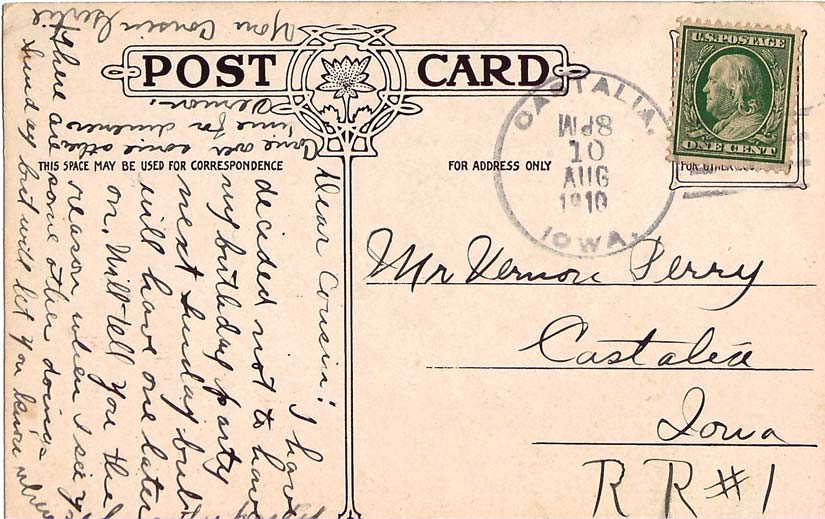 POST CARD
THIS SPACE MAY BE USED FOR CORRESPONDENCE
FOR ADDRESS ONLY
U.S. POSTAGE
ONE CENT
CASTALIA,
8PM
10
AUG
1910
IOWA.
Mr Vernon Perry
Castalia
Iowa
RR#1
Dear Cousin: I have
decided not to have
my birthday party
next Sunday but
will have one later
on. Will tell you the
reason when I see
There are some other doings
Sunday but will let you know
Come over some other
time for
Vernon.
Your Cousin